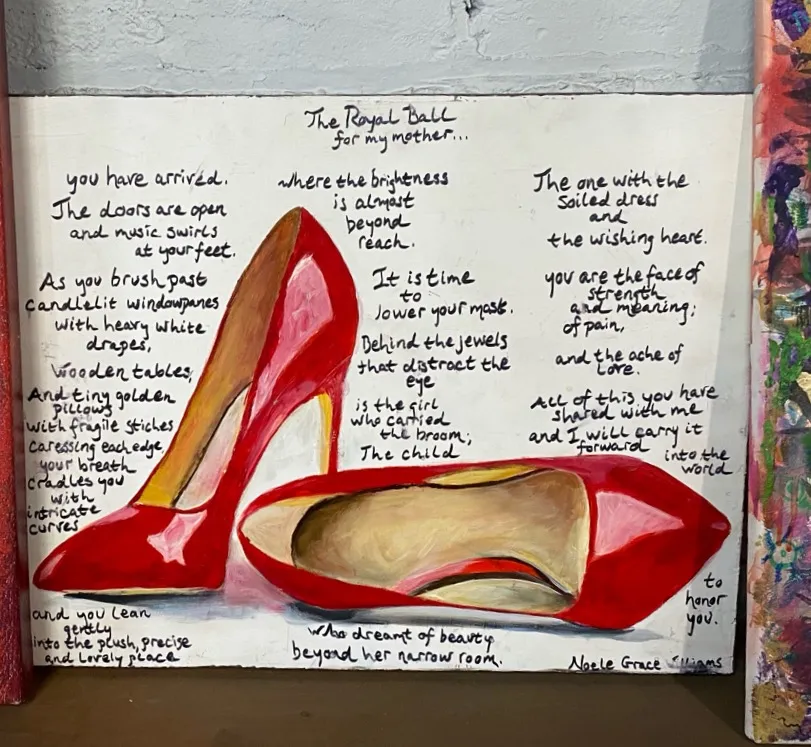 The Royal Ball
for my mother...
you have arrived.
The doors are open
and music swirls
at your feet.
As you brush past
candlelit windowpanes
with heavy white
drapes,
wooden tables,
And tiny golden
pillows
with fragile stiches
caressing each edge,
your breath
cradles you
with
intricate
curves
and you lean
gently
into the plush, precise
and lovely place
where the brightness
is almost
beyond
reach.
It is time
to
lower your mask.
Behind the jewels
that distract the
eye
is the girl
who carried
the broom;
The child
who dreamt of beauty
beyond her narrow room.
The one with the
soiled dress
and
the wishing heart.
you are the face of
strength
and meaning;
of pain,
and the ache of
Love.
All of this you have
shared with me
and I will carry it
forward
into the
world
to
honor
you.
Noele Grace